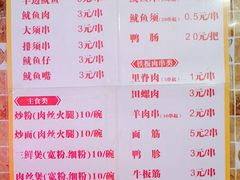 鱿鱼肉 3元/串
大须串 3元/串
排须串 3元/串
鱿鱼仔 3元/串
鱿鱼嘴 3元/串
主食类
炒粉(肉丝火腿)10/碗
炒面(肉丝火腿)10/碗
三鲜煲(宽粉.细粉)10/碗
鱿鱼须 0.5元/串
鸭肠 20元/把
铁板肉串类
里脊肉 1元/串
田螺肉 3元/串
羊肉串 2元/串
面筋 5元2串
鸭胗 3元/串
牛板筋 3元/串